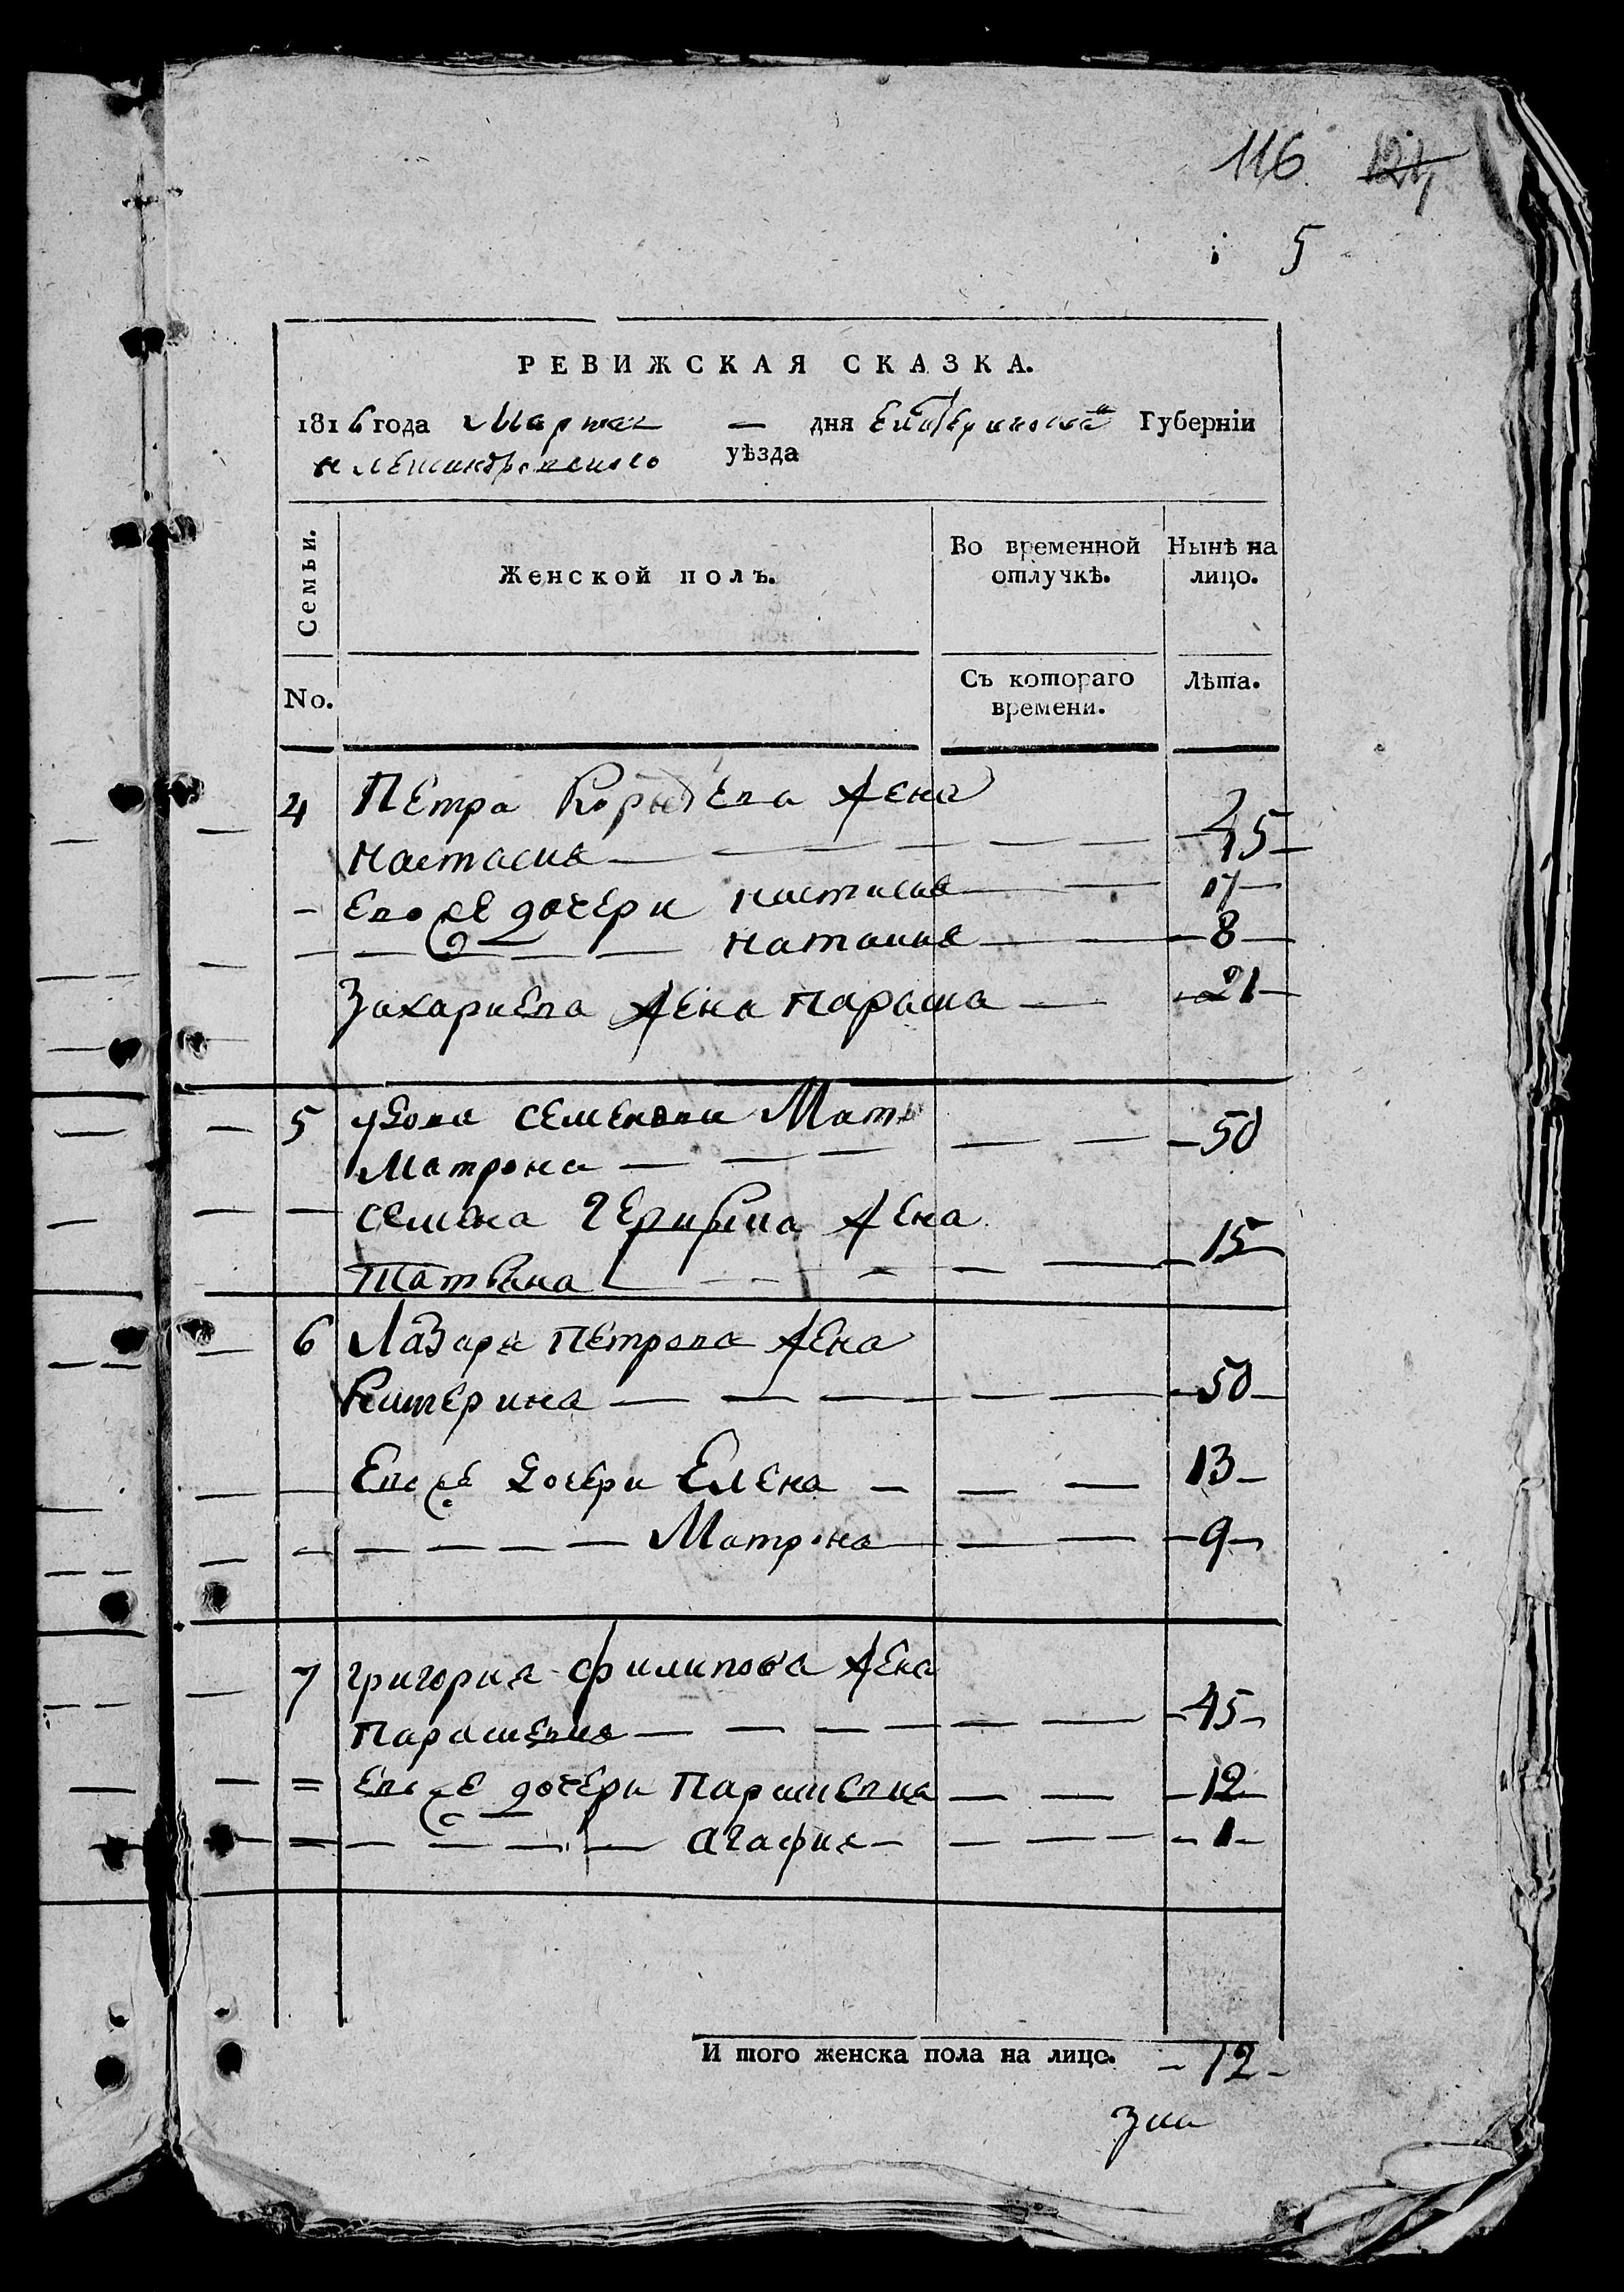 116. 124
5
РЕВИЖСКАЯ СКАЗКА.
1816 года Марта — дня Екатеринославской Губерніи
Александровского уѣзда
Семьи.
Женской полъ.
Во временной отлучкѣ.
Нынѣ на лицо.
No.
Съ котораго времени.
Лѣта.
4 Петра жена
Настасия — — — — — 45
— Его же дочери Настасия — — 17
— — — — Наталия — — 8
Захариева жена Параска — 21
5 Семенови Мать
Матрона — — — — — 50
— Семена жена
Татьяна — — — — — 15
6 Лазаря Петрова жена
Катерина — — — — — 50
— Его же дочери Елена — — — 13
— — — — — Матрона — — — 9
7 Григория Филипова жена
Парасковия — — — — — — 45
= Его же дочери Парасковия — — 12
= — — — — Агафия — — — — 1
И того женска пола на лицо. — 12 —